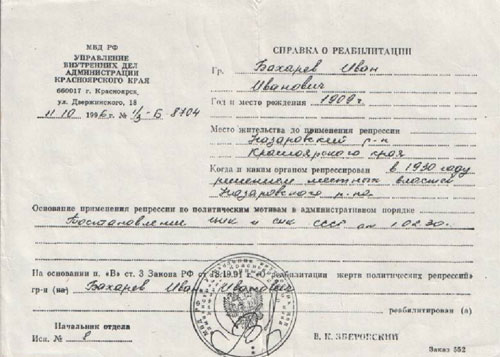 МВД РФ
УПРАВЛЕНИЕ
ВНУТРЕННИХ ДЕЛ
АДМИНИСТРАЦИИ
КРАСНОЯРСКОГО КРАЯ
660017 г. Красноярск,
ул. Дзержинского, 18
11.10 1996 г. № 1/3-Б 8704
СПРАВКА О РЕАБИЛИТАЦИИ
Гр. Бахарев Иван
Иванович
Год и место рождения 1909 г.
Место жительства до применения репрессии
Назаровский р-н
Красноярского края
Когда и каким органом репрессирован в 1930 году
решением местных властей
Назаровского р-на
Основание применения репрессии по политическим мотивам в административном порядке
Постановление ЦИК и СНК СССР от 1.02.30.
На основании п. «В» ст. 3 Закона РФ от 18.10.91 г. «О реабилитации жертв политических репрессий»
гр-н (ка) Бахарев Иван Иванович
реабилитирован (а)
Начальник отдела
Исп. № 8
В. К. ЗБЕРОВСКИЙ
Заказ 552